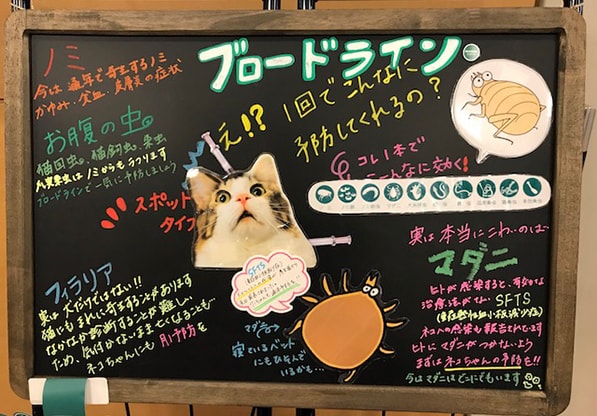 ブロードライン
ノミ
今は通年で寄生するノミ
かゆみ、貧血、皮膚の症状
え!?
1回でこんなに
予防してくれるの?
お腹の虫
猫回虫、猫鉤虫、条虫
条虫はノミからもうつります
ブロードラインで一気に予防しましょう
コレ1本で
こんなに効く!
スポット
タイプ
フィラリア
実は犬だけではない!!
猫にもまれに寄生することがあります
なかなか診断することが難しい
ため、気付かないまま亡くなることも…
ネコちゃんにも月1予防を
SFTS
マダニ
寝ているペットにも
ひそんで
いるかも…
実は本当にこわいのは…
マダニ
ヒトが感染すると、有効な
治療法がないSFTS
(重症熱性血小板減少症)
ネコへの感染も報告されています
ヒトにマダニがつかないよう
まずはネコちゃんの予防を!!
今はマダニはどこにでもいます